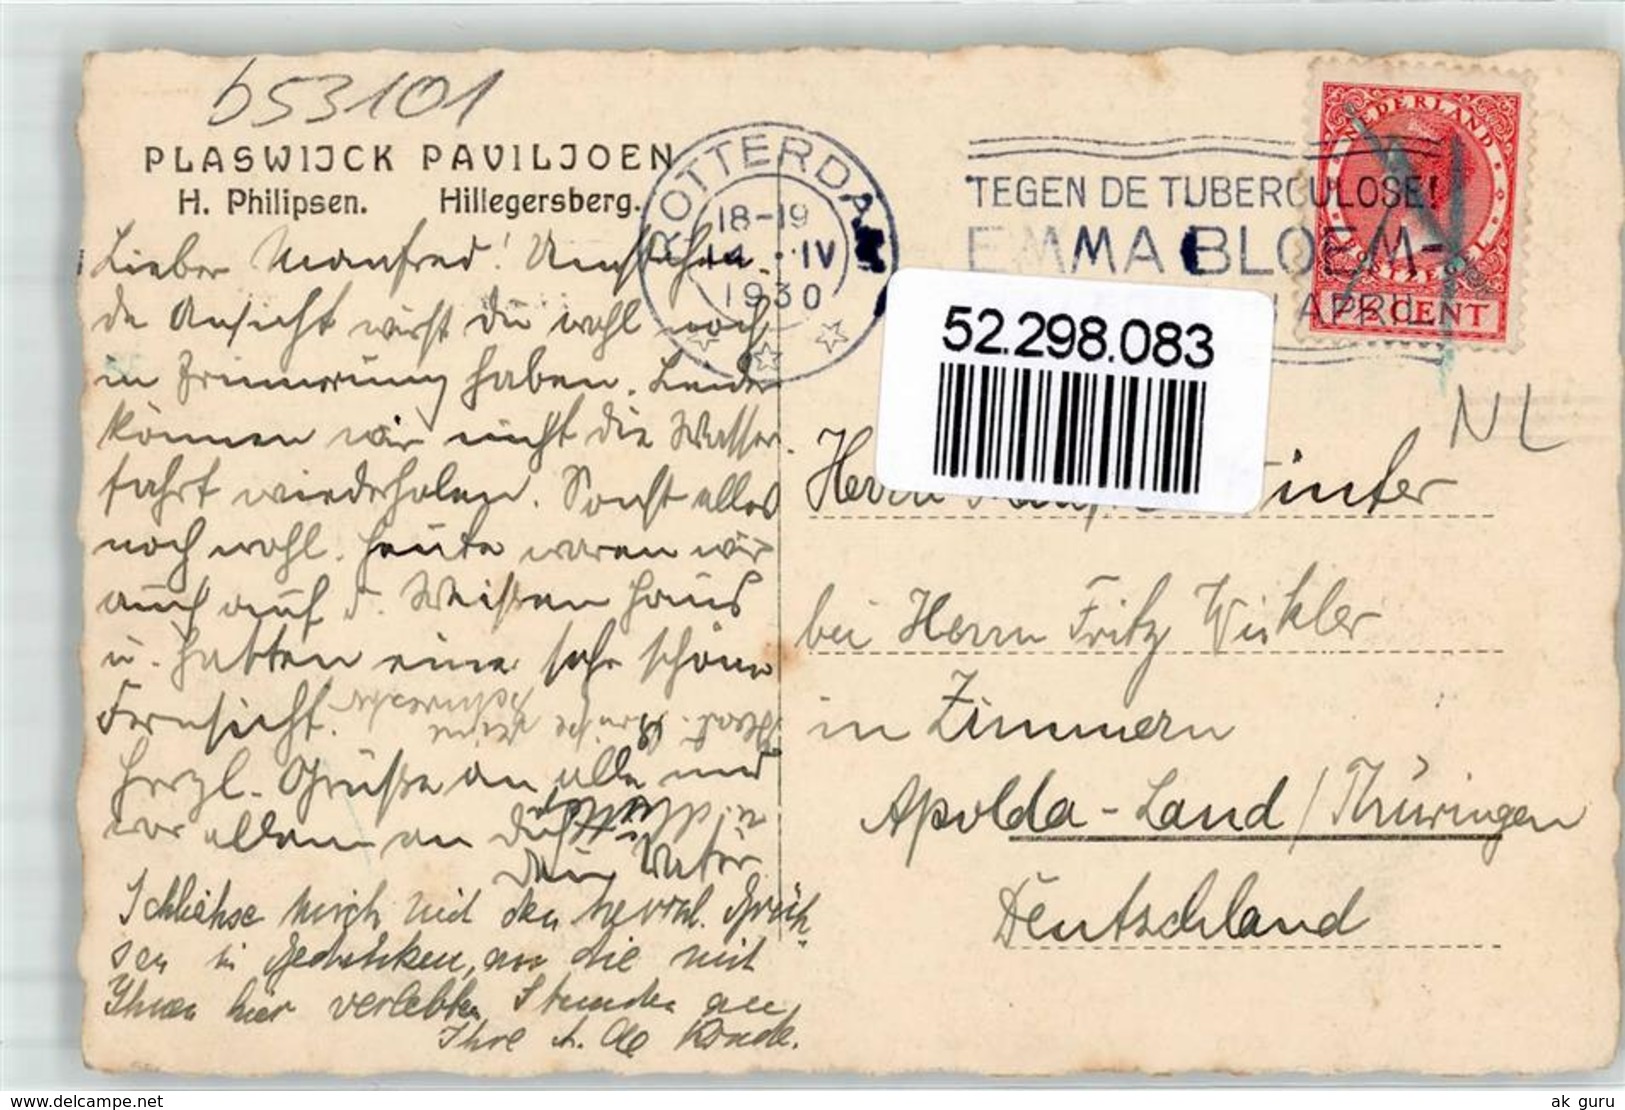 b53101
PLASWIJCK PAVILJOEN
H. Philipsen. Hillegersberg.
ROTTERDAM
18-19
14 · IV
1930
TEGEN DE TUBERCULOSE!
EMMA BLOEM-
APRIL
NEDERLAND
POSTZEGEL
7½ CENT
52.298.083
NL
Lieber Manfred! Umstehen-
de Ansicht wirst du wohl noch
in Erinnerung haben. Leider
können wir nicht die Wasser-
fahrt wiederholen. Sonst alles
noch wohl. Heute waren wir
auch auf d. Weißen Haus
u. hatten eine sehr schöne
Fernsicht.
Herzl. Grüße Deine Schwester
Herzl. Grüße an alle und
vor allem an dich
Dein Vater
Schließe mich mit den herzl. Grüs-
sen in Gedenken, an die mit
Ihnen hier verlebten Stunden an
Ihre
Herrn Winter
bei Herrn Fritz Winkler
in Zimmern
Apolda-Land/Thüringen
Deutschland
www.delcampe.net
ak guru